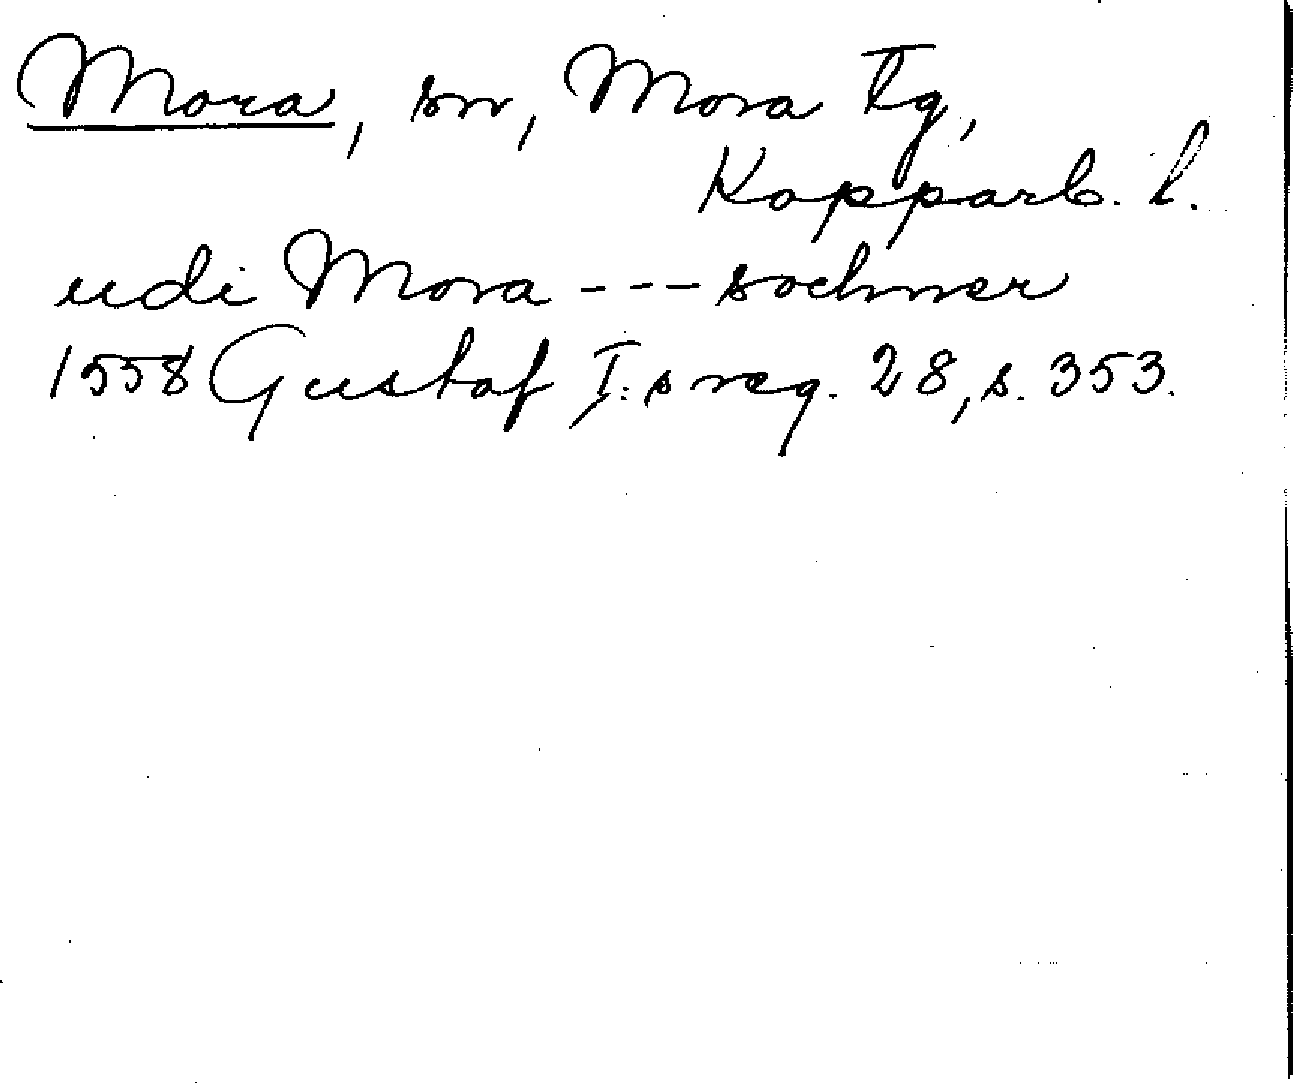 Mora, sn, Mora tg,
Kopparb. l.
udi Mora --- sochner
1558 Gustaf I:s reg. 28, s. 353.